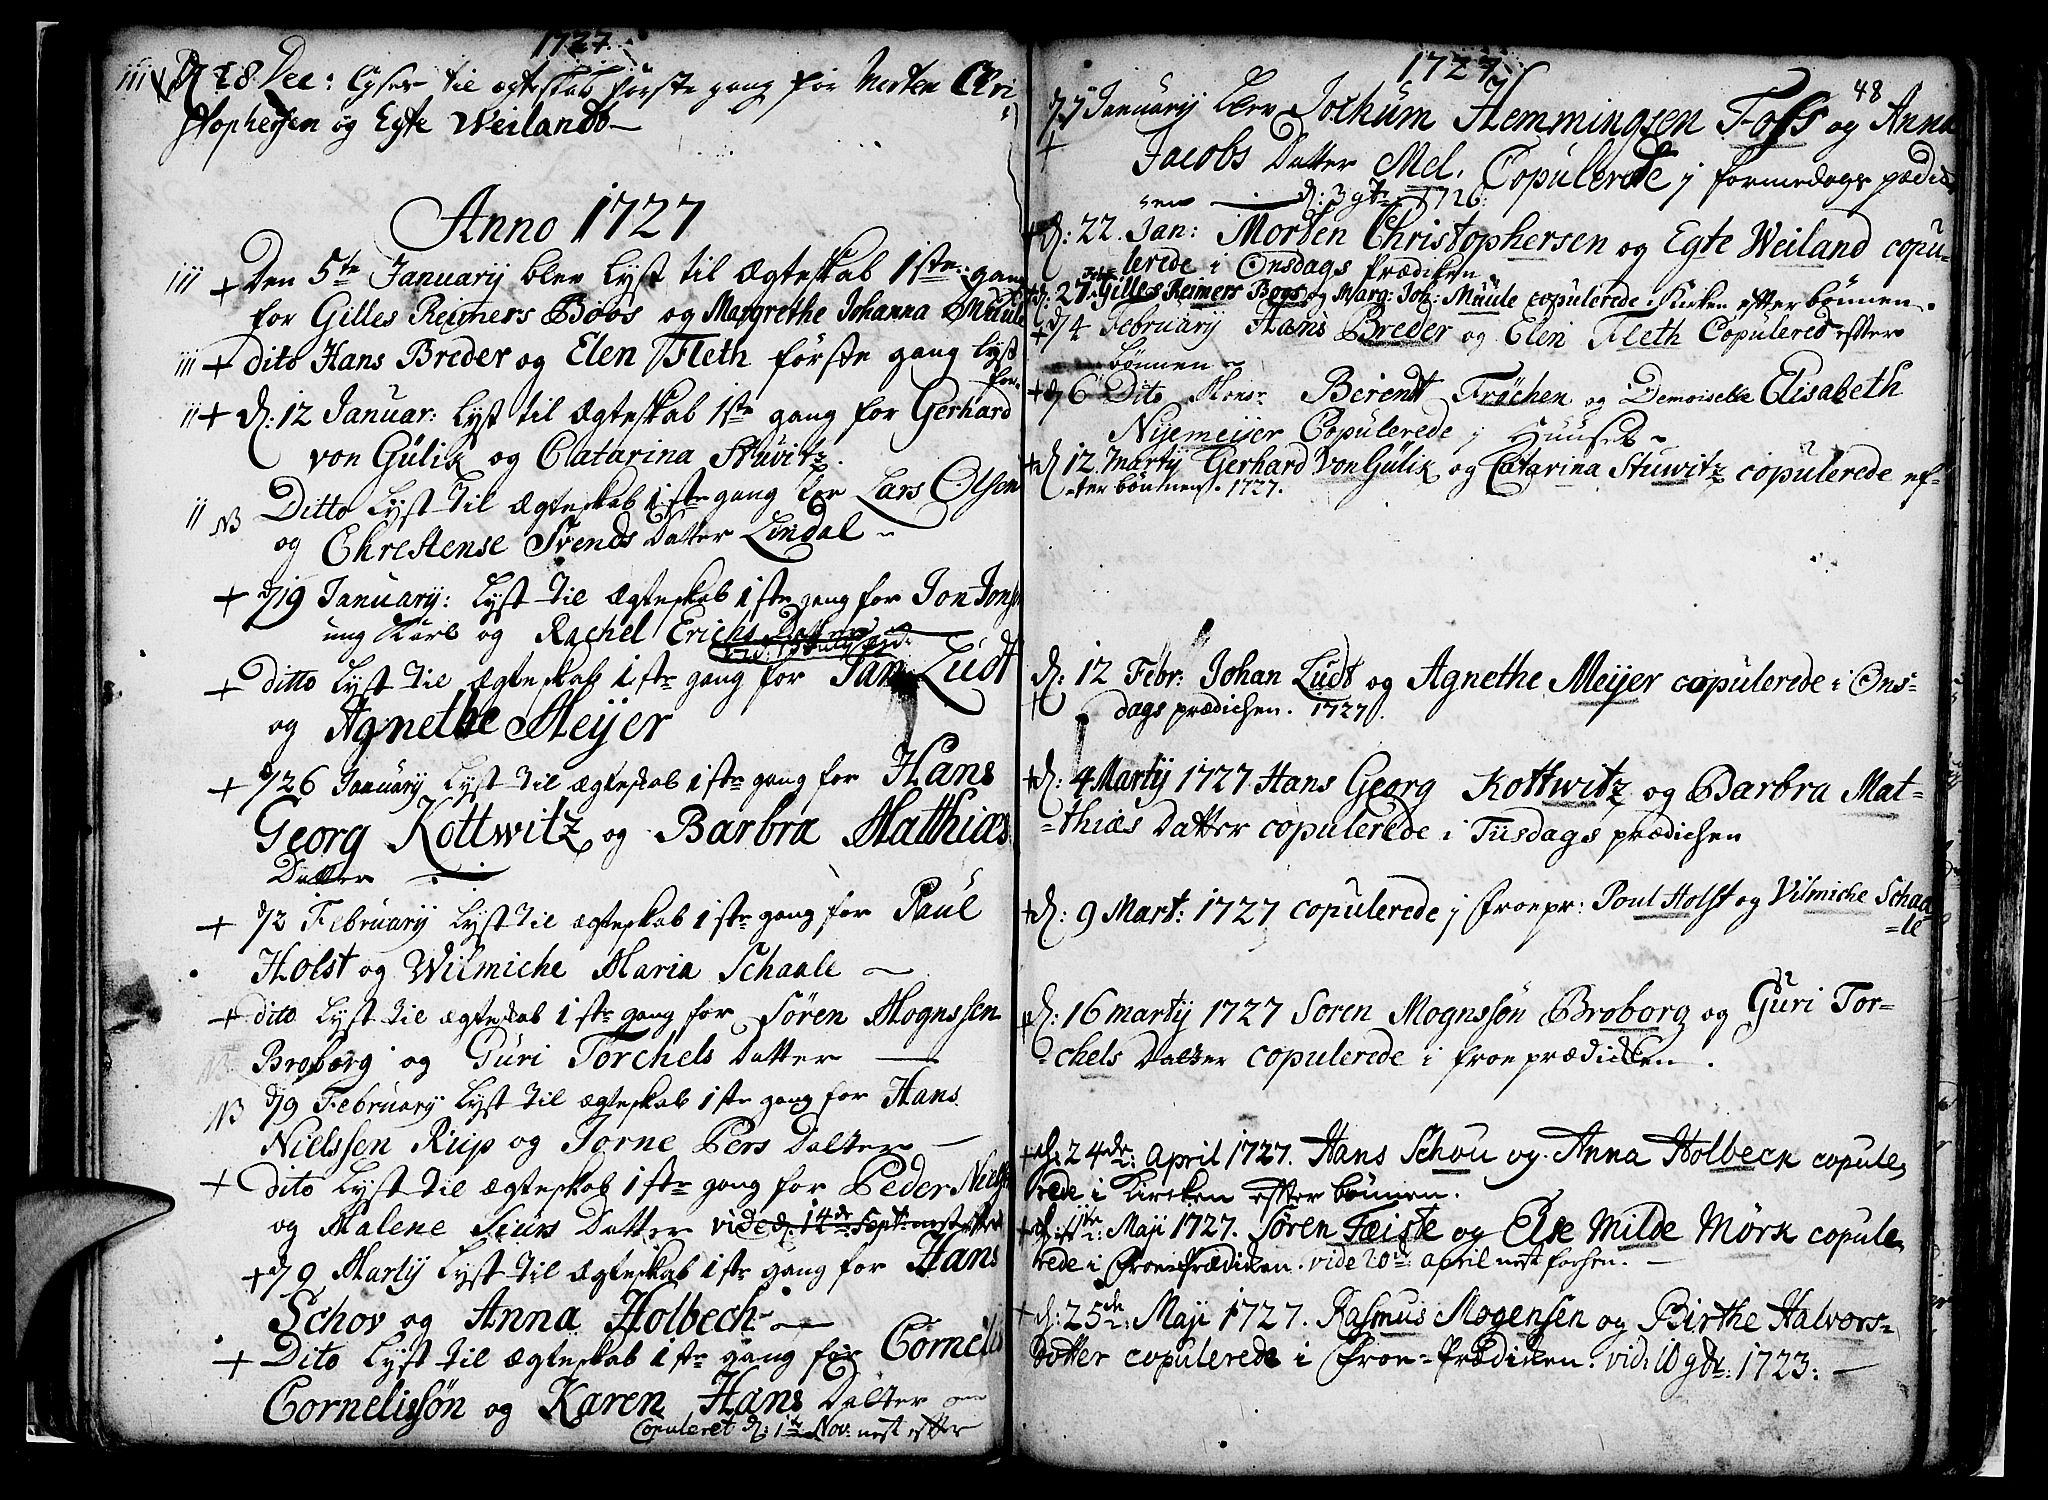 1727
iii d. 28 Dec: lyser til ægteskab første gang for Morten Chri-
stophersen og Egte Weilandt
Anno 1727
iii + Den 5te Januarij blev lyst til Ægteskab 1ste gang
for Gilles Reimers Boos og Margrethe Johanna Muule
iii + dito Hans Breder og Elen Fleth første gang lyst
for
ii + d: 12 Januar: lyst til Ægteskab 1ste gang for Gerhard
von Gülik og Catarina Stuvitz.
ii NB Ditto lyst til ægteskab 1ste gang for Lars Olsen
og Christense Svends Datter Lindal
+ d 19 Januarij: lyst til ægteskab 1ste gang for Jon Jons
ung Karl og Rachel Erichs Datter
+ ditto lyst til ægteskab 1ste gang for Jan Ludt
og Agnethe Meijer
+ d 26 Januarij lyst til ægteskab 1ste gang for Hans
Georg Kottwitz og Barbra Matthias
Datter
+ d 2 Februarij lyst til ægteskab 1ste gang for Paul
Holst og Wilmiche Maria Schaale
+ dito lyst til ægteskab 1ste gang for Sören Mognssen
NB Broborg og Guri Torchels Datter
NB d 9 Februarij lyst til ægteskab 1ste gang for Hans
Nielssen Riip og Jorne Pers Datter
+ dito lyst til ægteskab 1ste gang for Peder Niels
og Malene Siurs Datter vide d. 14de Sept: nest efter
+ d 9 Martij lyst til ægteskab 1ste gang for Hans
Schov og Anna Holbech
+ Dito lyst til ægteskab 1ste gang for Cornelis
Cornelissön og Karen Hans Datter
Copuleret d: 1te Nov: nest efter
1727
48
Januarij blev Jochum Hemmingsen Foss og Anna
+ Jacobs Datter Mel. Copulerede j formedags prædic
ken d: 3 9br 1726.
+ d: 22. Jan: Morten Christophersen og Egte Weiland copu-
lerede i Onsdags Prædiken
+ d: 27. Gilles Reimers Boos og Marg: Joh: Muule copulerede i Kirken efter bönnen.
+ d 4 Februarij Hans Breder og Elen Fleth Copulered efter
bönnen
+ d 6 Dito Monsr Berendt Fröchen og Demoiselle Elisabeth
Nijemeijer Copulerede j Huuset
+ d 12. Martij Gerhard von Gülik og Catarina Stuwitz copulerede ef-
ter bönnen. 1727.
d: 12 Febr: Johan Ludt og Agnethe Meijer copulerede i Ons-
+ dags prædichen. 1727.
+ d: 4 Martij 1727. Hans Georg Kottwitz og Barbra Mat-
-thias Datter copulerede i Tiisdags prædichen
+ d: 9 Mart: 1727 copulerede j froepr: Poul Holst og Vilmiche Schaa
-le
+ d: 16 martij 1727 Soren Mognssön Broborg og Guri Tor-
-chels Datter copulerede i froe prædicken.
+ d: 24de April 1727. Hans Schou og Anna Holbeck copule-
rede i Kircken efter bönnen.
+ d: 11te Maji 1727. Sören Feiste og Else Milde Mörk copule-
rede i Froe-Prædiken. vide 20de april nest forhen.
+ d: 25de Maji 1727. Rasmus Mogensen og Birthe Halvors-
Dotter copulerede i Froe-Prædiken. vid: 10 9br: 1723: